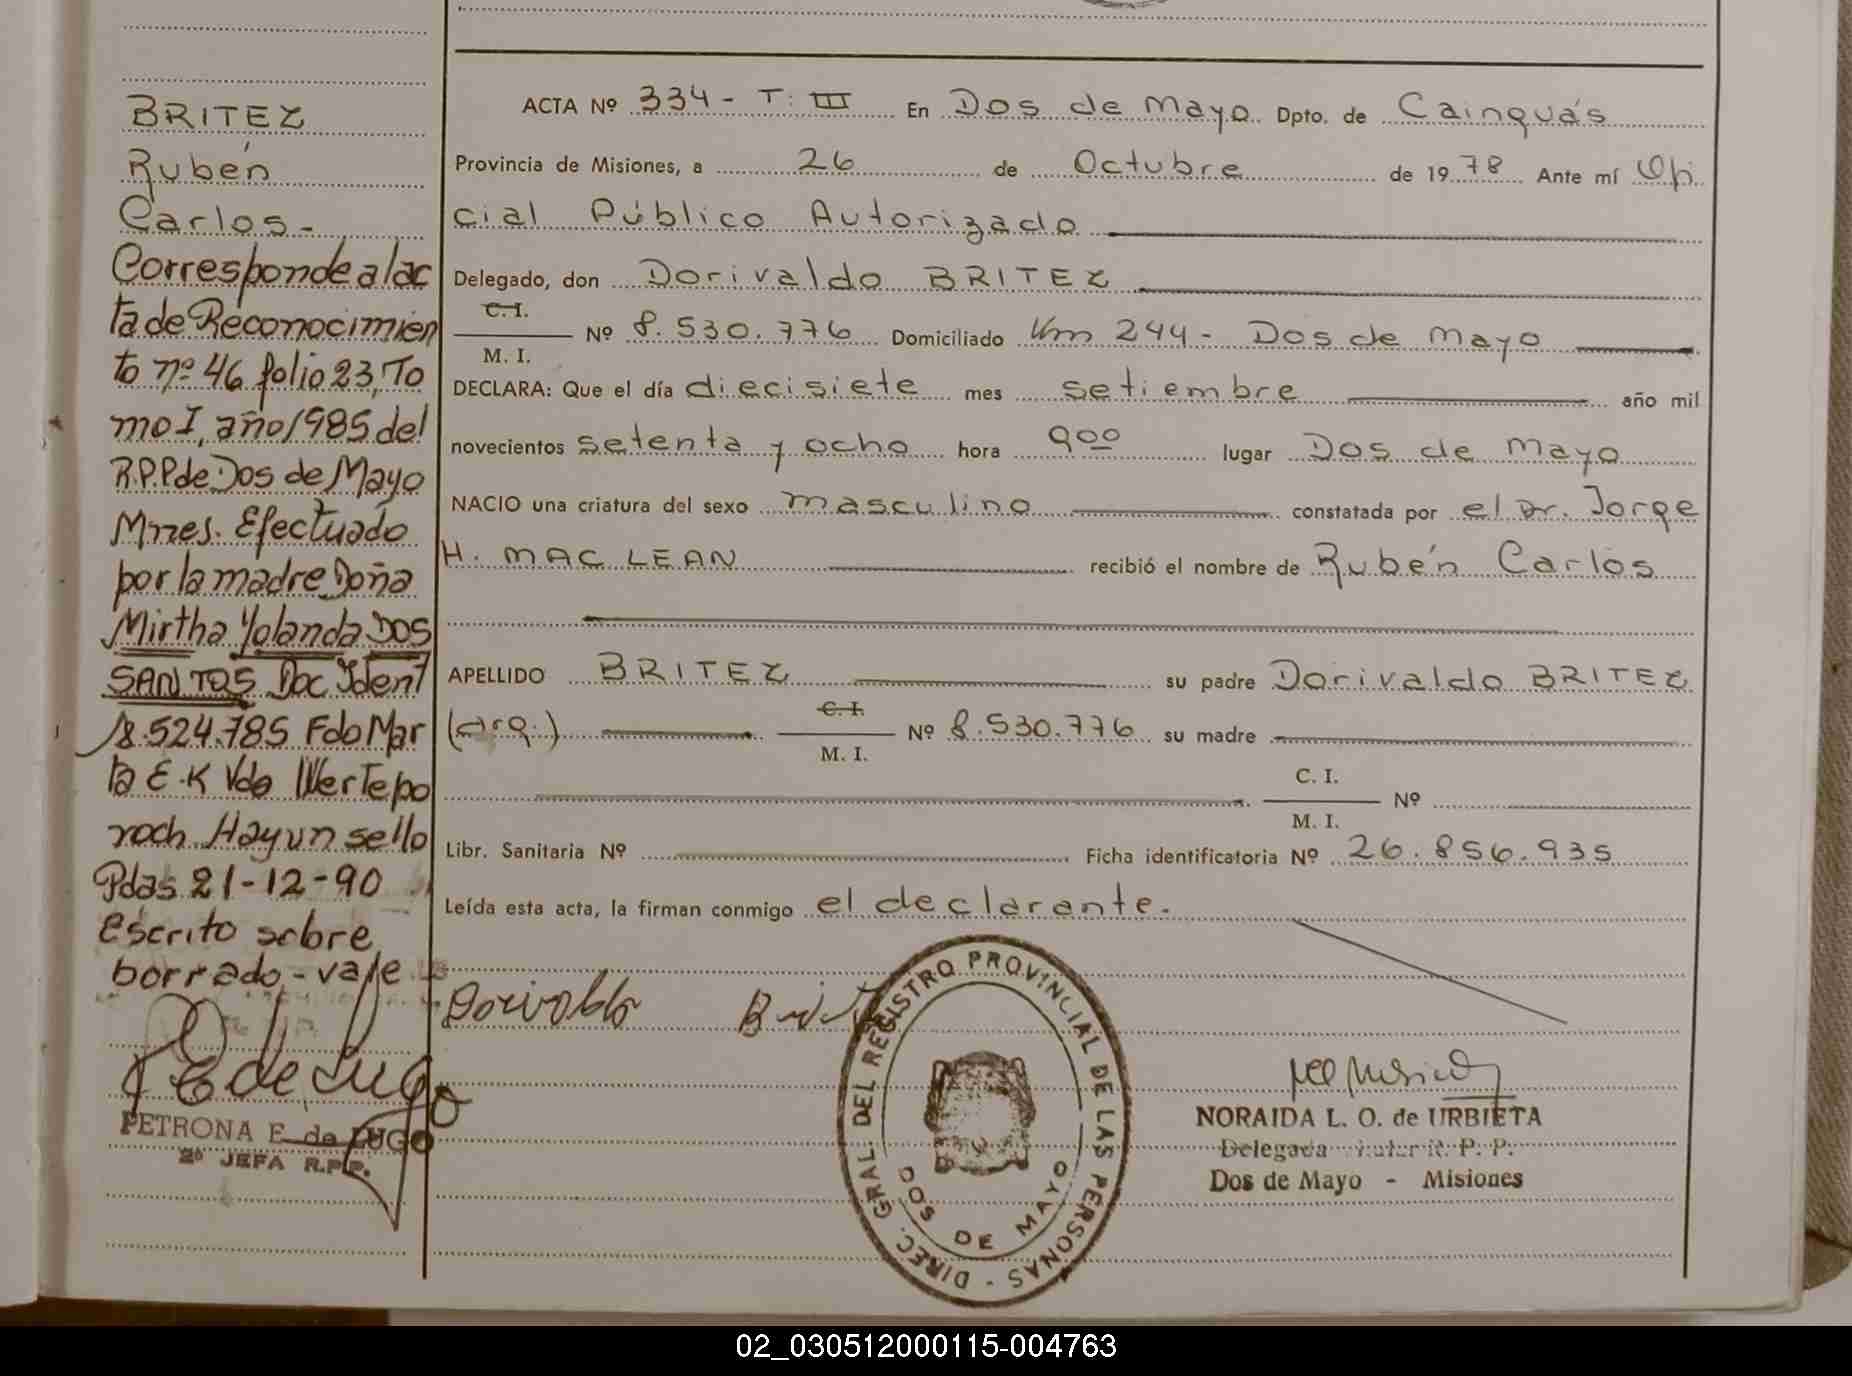 BRITEZ
Rubén
Carlos-
Corresponde al ac
ta de Reconocimien
to nº 46 folio 23, To
mo I, año 1985 del
R.P.P de Dos de Mayo
Mnes. Efectuado
por la madre Doña
Mirtha Yolanda DOS
SANTOS Doc Ident
18.524.785 Fdo Mar
ta E.K Vda Wertepo
roch Hay un sello
Pdas 21-12-90
Escrito sobre
borrado-vale
PETRONA E. de LUGO
2ª JEFA R.P.P.
ACTA Nº 334- T: III En Dos de Mayo Dpto. de Cainguás
Provincia de Misiones, a 26 de Octubre de 1978 Ante mí Ofi
cial Público Autorizado
Delegado, don Dorivaldo BRITEZ
C.I.
M. I. Nº 8.530.776 Domiciliado Km 244- Dos de Mayo
DECLARA: Que el día diecisiete mes setiembre año mil
novecientos setenta y ocho hora 900 lugar Dos de Mayo
NACIO una criatura del sexo masculino constatada por el Dr. Jorge
H. MAC LEAN recibió el nombre de Rubén Carlos
APELLIDO BRITEZ su padre Dorivaldo BRITEZ
(arg.) C.I. M. I. Nº 8.530.776 su madre
C. I.
M. I. Nº
Libr. Sanitaria Nº Ficha identificatoria Nº 26.856.935
Leída esta acta, la firman conmigo el declarante.
Dorivaldo Britez
DIREC. GRAL. DEL REGISTRO PROVINCIAL DE LAS PERSONAS -
DOS DE MAYO
NORAIDA L. O. de URBIETA
Delegada R. P. P.
Dos de Mayo - Misiones
02_030512000115-004763